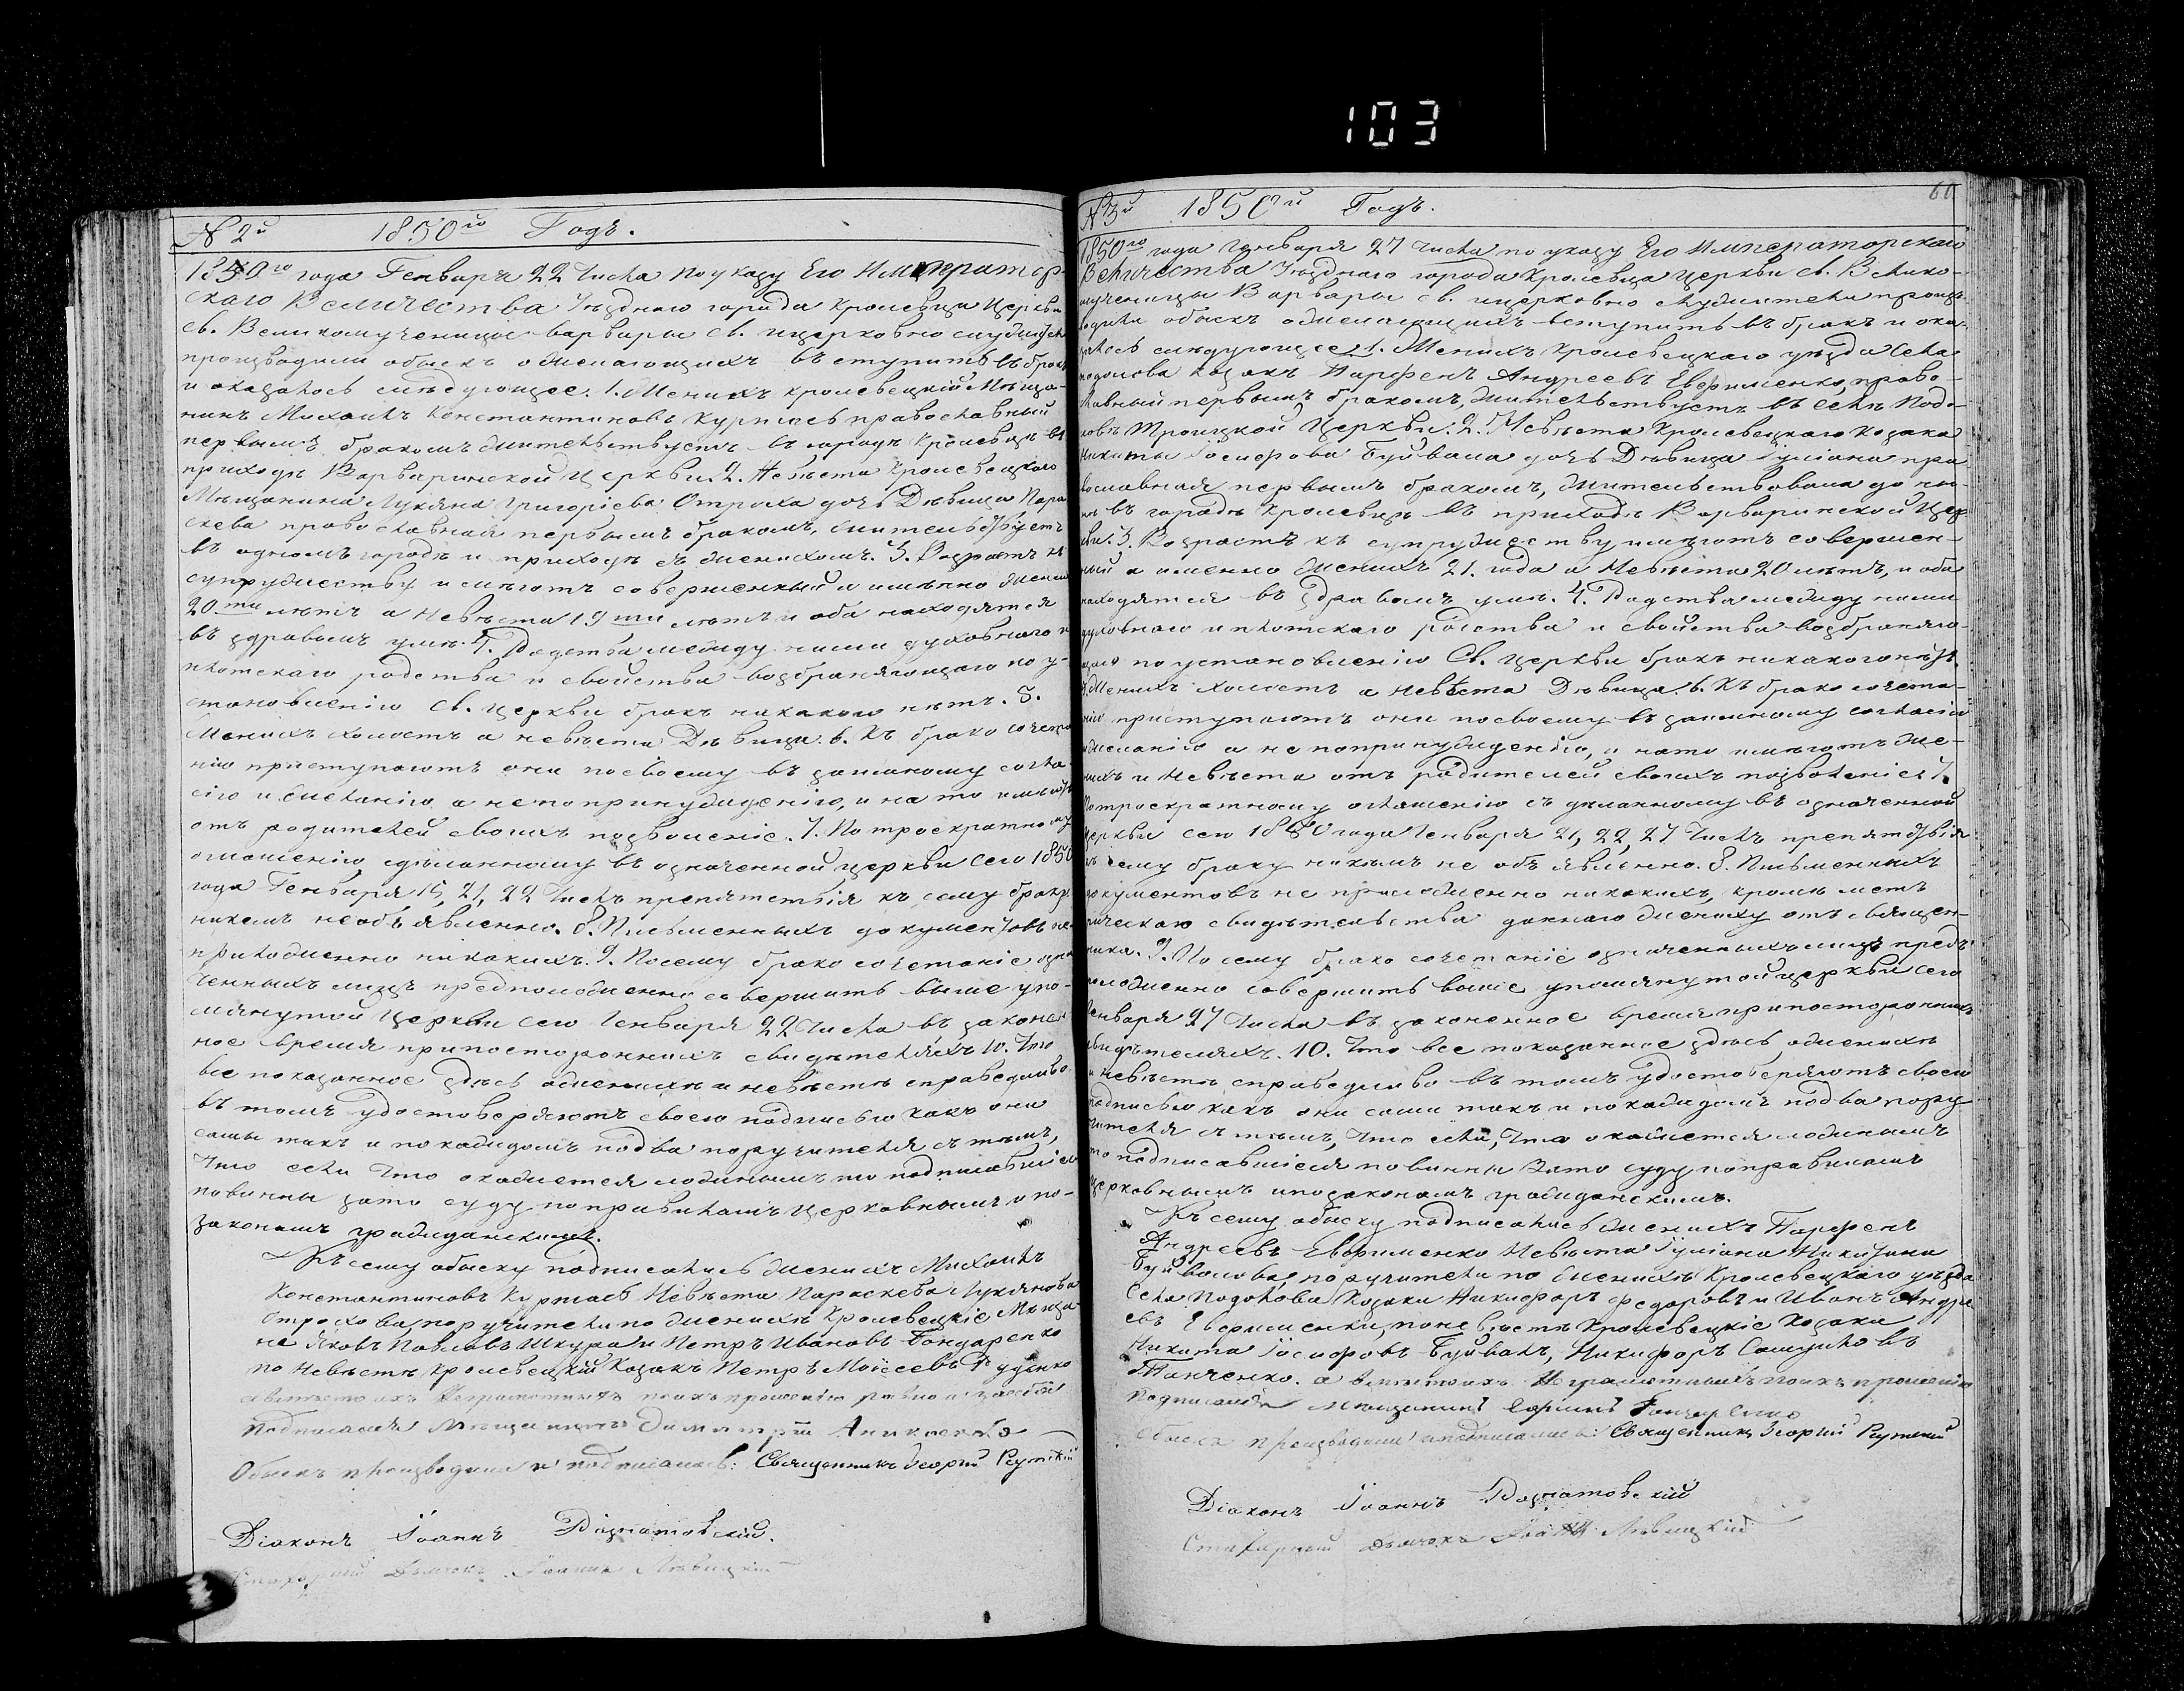 103
№ 2й 1850й Годъ.
1850го года Генваря 22 числа по указу Его Император-
скаго Величества Уѣзднаго города Кролевца Церкви
св. Великомученицы Варвары св. и церковно служители
производили обыскъ о желающихъ вступить въ бракъ
и оказалось слѣдующее. 1. Женихъ кролевецкій мѣща-
нинъ Михаилъ Константиновъ православный
первымъ бракомъ жительствуетъ въ городѣ Кролевцѣ въ
приходѣ Варваринской Церкви. 2. Невѣста кролевецкаго
Мѣщанина Лукяна Григоріева Отроха дочь Дѣвица Пара-
скева православная первымъ бракомъ, жительствуетъ
въ одномъ городѣ и приходѣ съ женихомъ. 3. Возрастъ къ
супружеству имѣютъ совершенный и именно женихъ
20ти лѣтъ а невѣста 19ти лѣтъ и оба находятся
въ здравомъ умѣ. 4. Родства между ними духовнаго и
плотскаго родства и свойства возбраняющаго по у-
становленію св. церкви бракъ никакого нѣтъ. 5.
Женихъ холостъ а невѣста Дѣвица. 6. Къ бракосочета-
нію приступаютъ они по своему взаимному согла-
сію и желанію а не по принужденію, и на то имѣютъ
отъ родителей своихъ позволеніе. 7. По троекратному
оглашенію сдѣланному въ означенной церкви сего 1850
года Генваря 15, 21, 22 числъ препятствія къ сему браку
никемъ не объявленно. 8. Письменныхъ документовъ не
приложенно никакихъ. 9. Посему бракосочетаніе озна-
ченныхъ лицъ предположенно совершить выше упо-
мянутой Церкви сего Генваря 22 числа въ закон-
ное время при постороннихъ свидѣтеляхъ. 10. Что
все показанное здѣсь о женихѣ и невѣстѣ справедливо
въ томъ удостоверяютъ своею подписью какъ они
самы такъ и по каждомъ по два поручителя съ тѣмъ,
что если что окажется ложнымъ то подписавшіеся
повинны за то суду по правиламъ церковнымъ и по-
законамъ гражданскимъ.
Къ сему обыску подписались женихъ Михаилъ
Константиновъ Невѣста Параскева Лукянова
Отрохова поручители по женихѣ Кролевецкіе Мѣща-
не Яковъ Павловъ Шкура и Петръ Ивановъ Бондаренко
по Невѣстѣ Кролевецкій Козакъ Петръ Моісеевъ Руденко
а вмѣсто ихъ неграмотныхъ по ихъ прошенію равно и за себя
подписался Мѣщанинъ Димитрій
Обыскъ производили и подписались: Священникъ Георгій
Діаконъ Іоаннъ
Дьячокъ Іоаннъ Лѣвицкій
№ 3й 1850й Годъ.
1850го года Генваря 27 числа по указу Его Императорскаго
Величества Уѣзднаго города Кролевца Церкви св. Велико-
мученицы Варвары св. и церковно служители произ-
водили обыскъ о желающихъ вступить въ бракъ и ока-
залось слѣдующее 1. Женихъ Кролевецкаго уѣзда села
Подолова козакъ Парфенъ Андреевъ Евфименко, право-
славный первымъ бракомъ, жительствуетъ въ селѣ Подо-
ловѣ Троицкой Церкви. 2. Невѣста Кролевецкаго козака
Никиты Іосифова Буйвала дочь Дѣвица Іуліана пра-
вославная первымъ бракомъ, жительствовала до ны-
нѣ въ городѣ Кролевцѣ въ приходѣ Варваринской Цер-
кви. 3. Возрастъ къ супружеству имѣютъ совершен-
ный а именно женихъ 21. года а Невѣста 20 лѣтъ, и оба
находятся въ здравомъ умѣ. 4. Родства между ними
духовнаго и плотскаго родства и свойства возбраняю-
щаго по установленію Св. церкви бракъ никакого нѣтъ
5. Женихъ холостъ а невѣста Дѣвица. 6. Къ бракосочета-
нію приступаютъ они по своему взаимному согласію
и желанію а не по принужденію, и на то имѣютъ же-
нихъ и Невѣста отъ родителей своихъ позволеніе. 7.
По троекратному оглашенію сдѣланному въ означенной
Церкви сего 1850 года Генваря 21, 22, 27 числъ препятствія
къ сему браку никимъ не объявленно. 8. Письменныхъ
документовъ не приложенно никакихъ, кромѣ мет-
рическаго свидѣтельства даннаго жениху отъ священ-
ника. 9. По сему бракосочетаніе означенныхъ лицъ пред-
положенно совершить выше упомянутой церкви сего
Генваря 27 числа въ законенное время при постороннихъ
свидѣтеляхъ. 10. Что все показанное здѣсь о женихѣ
и невѣстѣ справедливо въ томъ удостоверяютъ своею
подписью какъ они сами такъ и по каждомъ по два пору-
чителя съ тѣмъ, что если, что окажется ложнымъ
то подписавшіеся повинны за то суду по правиламъ
церковнымъ и по законамъ гражданскимъ.
Къ сему обыску подписались женихъ Парфенъ
Андреевъ Евфименко Невѣста Іуліана Никитина
Буйволова, поручители по женихѣ Кролевецкаго уѣзда
Села Подолова Козаки Никифоръ Федоровъ и Иванъ Андре-
евъ Евфименки, по невѣстѣ Кролевецкіе Козаки
Никита Іосифовъ Буйвалъ, Никифоръ Самуиловъ
а вмѣсто ихъ неграмотныхъ по ихъ прошенію
подписался Мѣщанинъ
Обыскъ производили и подписались: Священникъ Георгій
Діаконъ Іоаннъ
Дьячокъ Іоаннъ Лѣвицкій